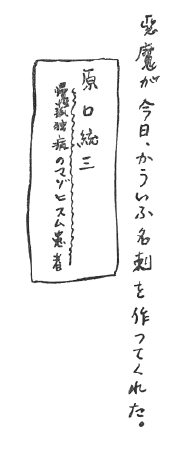 悪魔が今日、かういふ名刺を作つてくれた。
原口統三
慢性孤独病のマゾヒスム患者